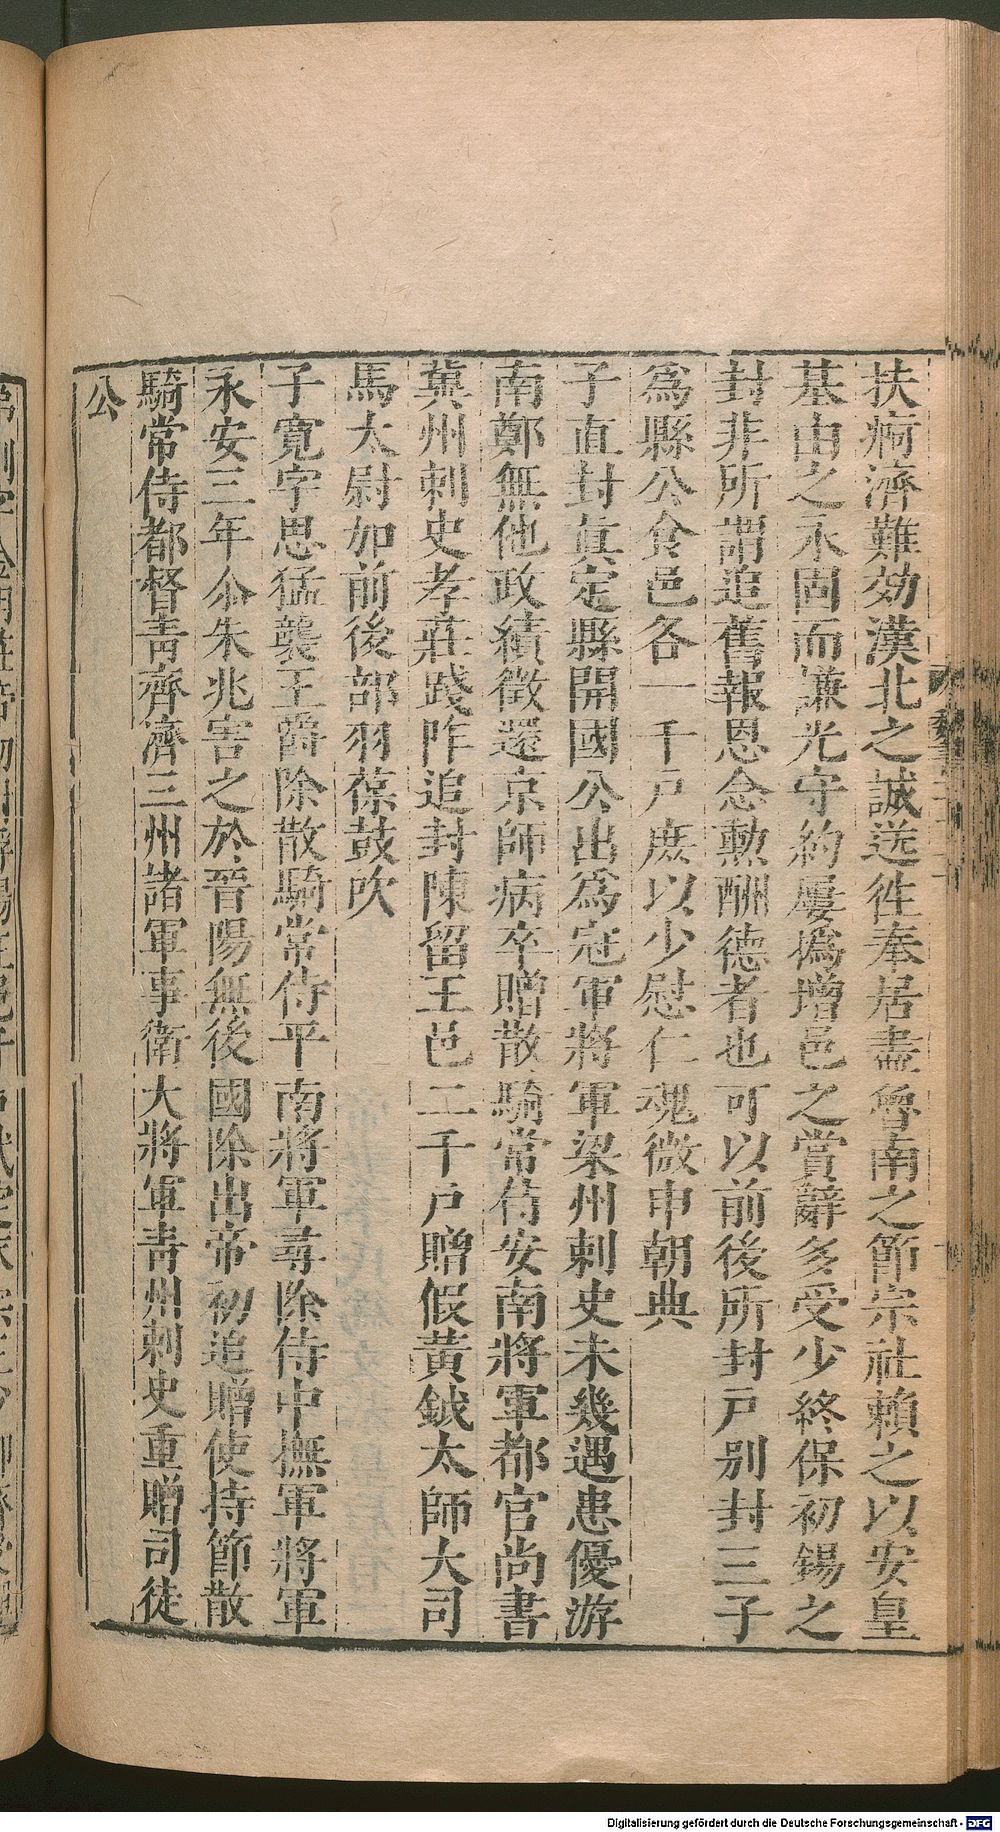 扶疴濟難効漢北之誠送徃奉居盡魯南之節宗社賴之以安皇
基由之永固而謙光守約屢撝增邑之賞辭多受少終保初錫之
封非所謂追舊報恩念勲酬德者也可以前後所封戸別封三子
爲縣公食邑各一千戸庶以少慰仁魂微申朝典
子直封真定縣開國公出爲冠軍將軍梁州刺史未幾遇患優游
南鄭無他政績徵還京師病卒贈散騎常侍安南將軍都官尚書
冀州刺史孝莊踐阼追封陳留王邑二千戸贈假黃鉞太師大司
馬太尉加前後部羽葆鼓吹
子寬字思猛襲王爵除散騎常侍平南將軍尋除侍中撫軍將軍
永安三年尒朱兆害之於晉陽無後國除出帝初追贈使持節散
騎常侍都督青齊濟三州諸軍事衛大將軍青州刺史重贈司徒
公
Digitalisierung gefördert durch die Deutsche Forschungsgemeinschaft - DFG